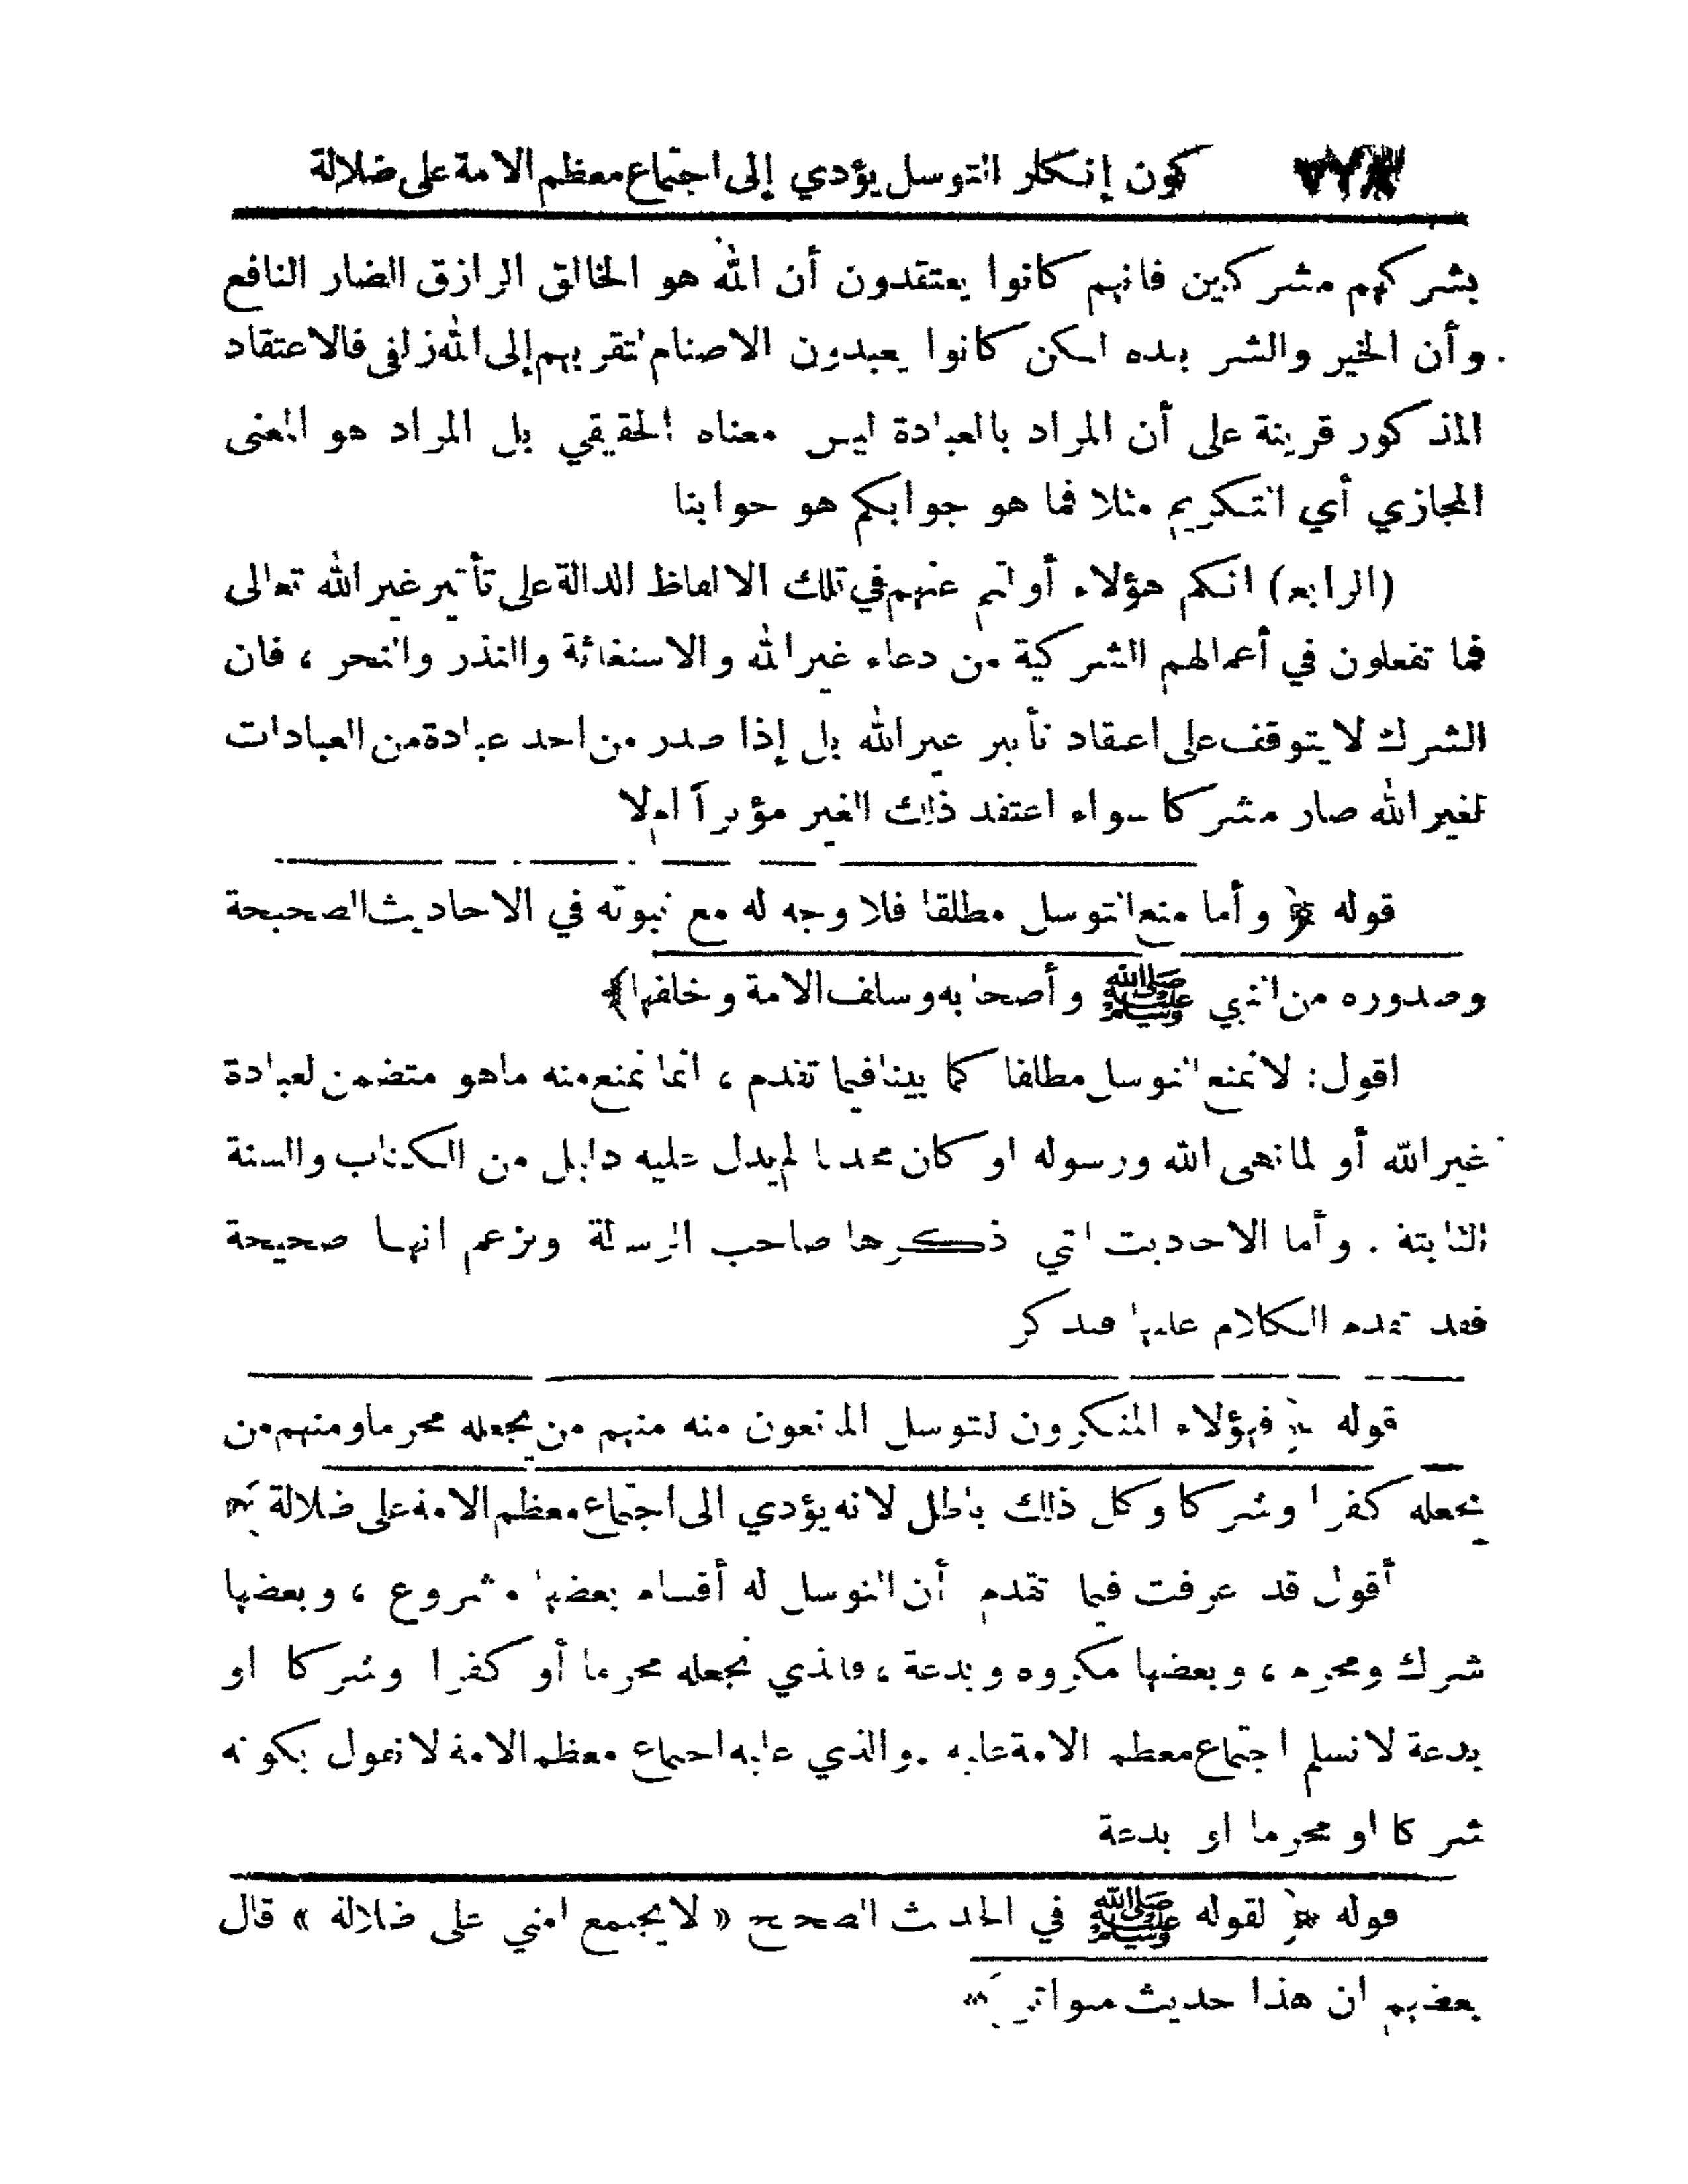 كون إنكار التوسل يؤدي إلى اجتماع معظم الامة على ضلالة
بشركهم مشركين فانهم كانوا يعتقدون أن الله هو الخالق الرازق الضار النافع
وأن الخير والشر بيده لكن كانوا يعبدون الاصنام لتقربهم إلى الله زلفى فالاعتقاد
المذكور قرينة على أن المراد بالعبادة ليس معناه الحقيقي بل المراد هو المعنى
المجازي أي التكريم مثلا فما هو جوابكم هو جوابنا
(الرابع) انكم هؤلاء أولتم عنهم في تلك الالفاظ الدالة على تأثير غير الله تعالى
فما تفعلون في أعمالهم الشركية من دعاء غير الله والاستغاثة والنذر والنحر ، فان
الشرك لا يتوقف على اعتقاد تأثير غير الله بل إذا صدر من احد عبادة من العبادات
لغير الله صار مشركا سواء اعتقد ذلك الغير مؤثراً ام لا
قوله ﴿ وأما منع التوسل مطلقا فلا وجه له مع ثبوته في الاحاديث الصحيحة
وصدوره من النبي ﷺ وأصحابه وسلف الامة وخلفها ﴾
اقول: لا نمنع التوسل مطلقا كما بينا فيما تقدم ، انما نمنع منه ما هو متضمن لعبادة
غير الله أو لما نهى الله ورسوله او كان محدثا لم يدل عليه دليل من الكتاب والسنة
الثابتة . وأما الاحاديث التي ذكرها صاحب الرسالة ونزعم انها صحيحة
فقد تقدم الكلام عليها فتذكر
قوله ﴿ فهؤلاء المنكرون للتوسل المانعون منه منهم من يجعله محرما ومنهم من
يجعله كفرا وشركا وكل ذلك باطل لانه يؤدي الى اجتماع معظم الامة على ضلالة ﴾
أقول قد عرفت فيما تقدم أن التوسل له أقسام بعضها مشروع ، وبعضها
شرك ومحرم ، وبعضها مكروه وبدعة ، فالذي نجعله محرما أو كفرا وشركا او
بدعة لا نسلم اجتماع معظم الامة عليه . والذي عليه اجتماع معظم الامة لا نقول بكونه
شركا او محرما او بدعة
قوله ﴿ لقوله ﷺ في الحديث الصحيح « لا يجتمع امتي على ضلالة » قال
بعضهم ان هذا حديث متواتر ﴾